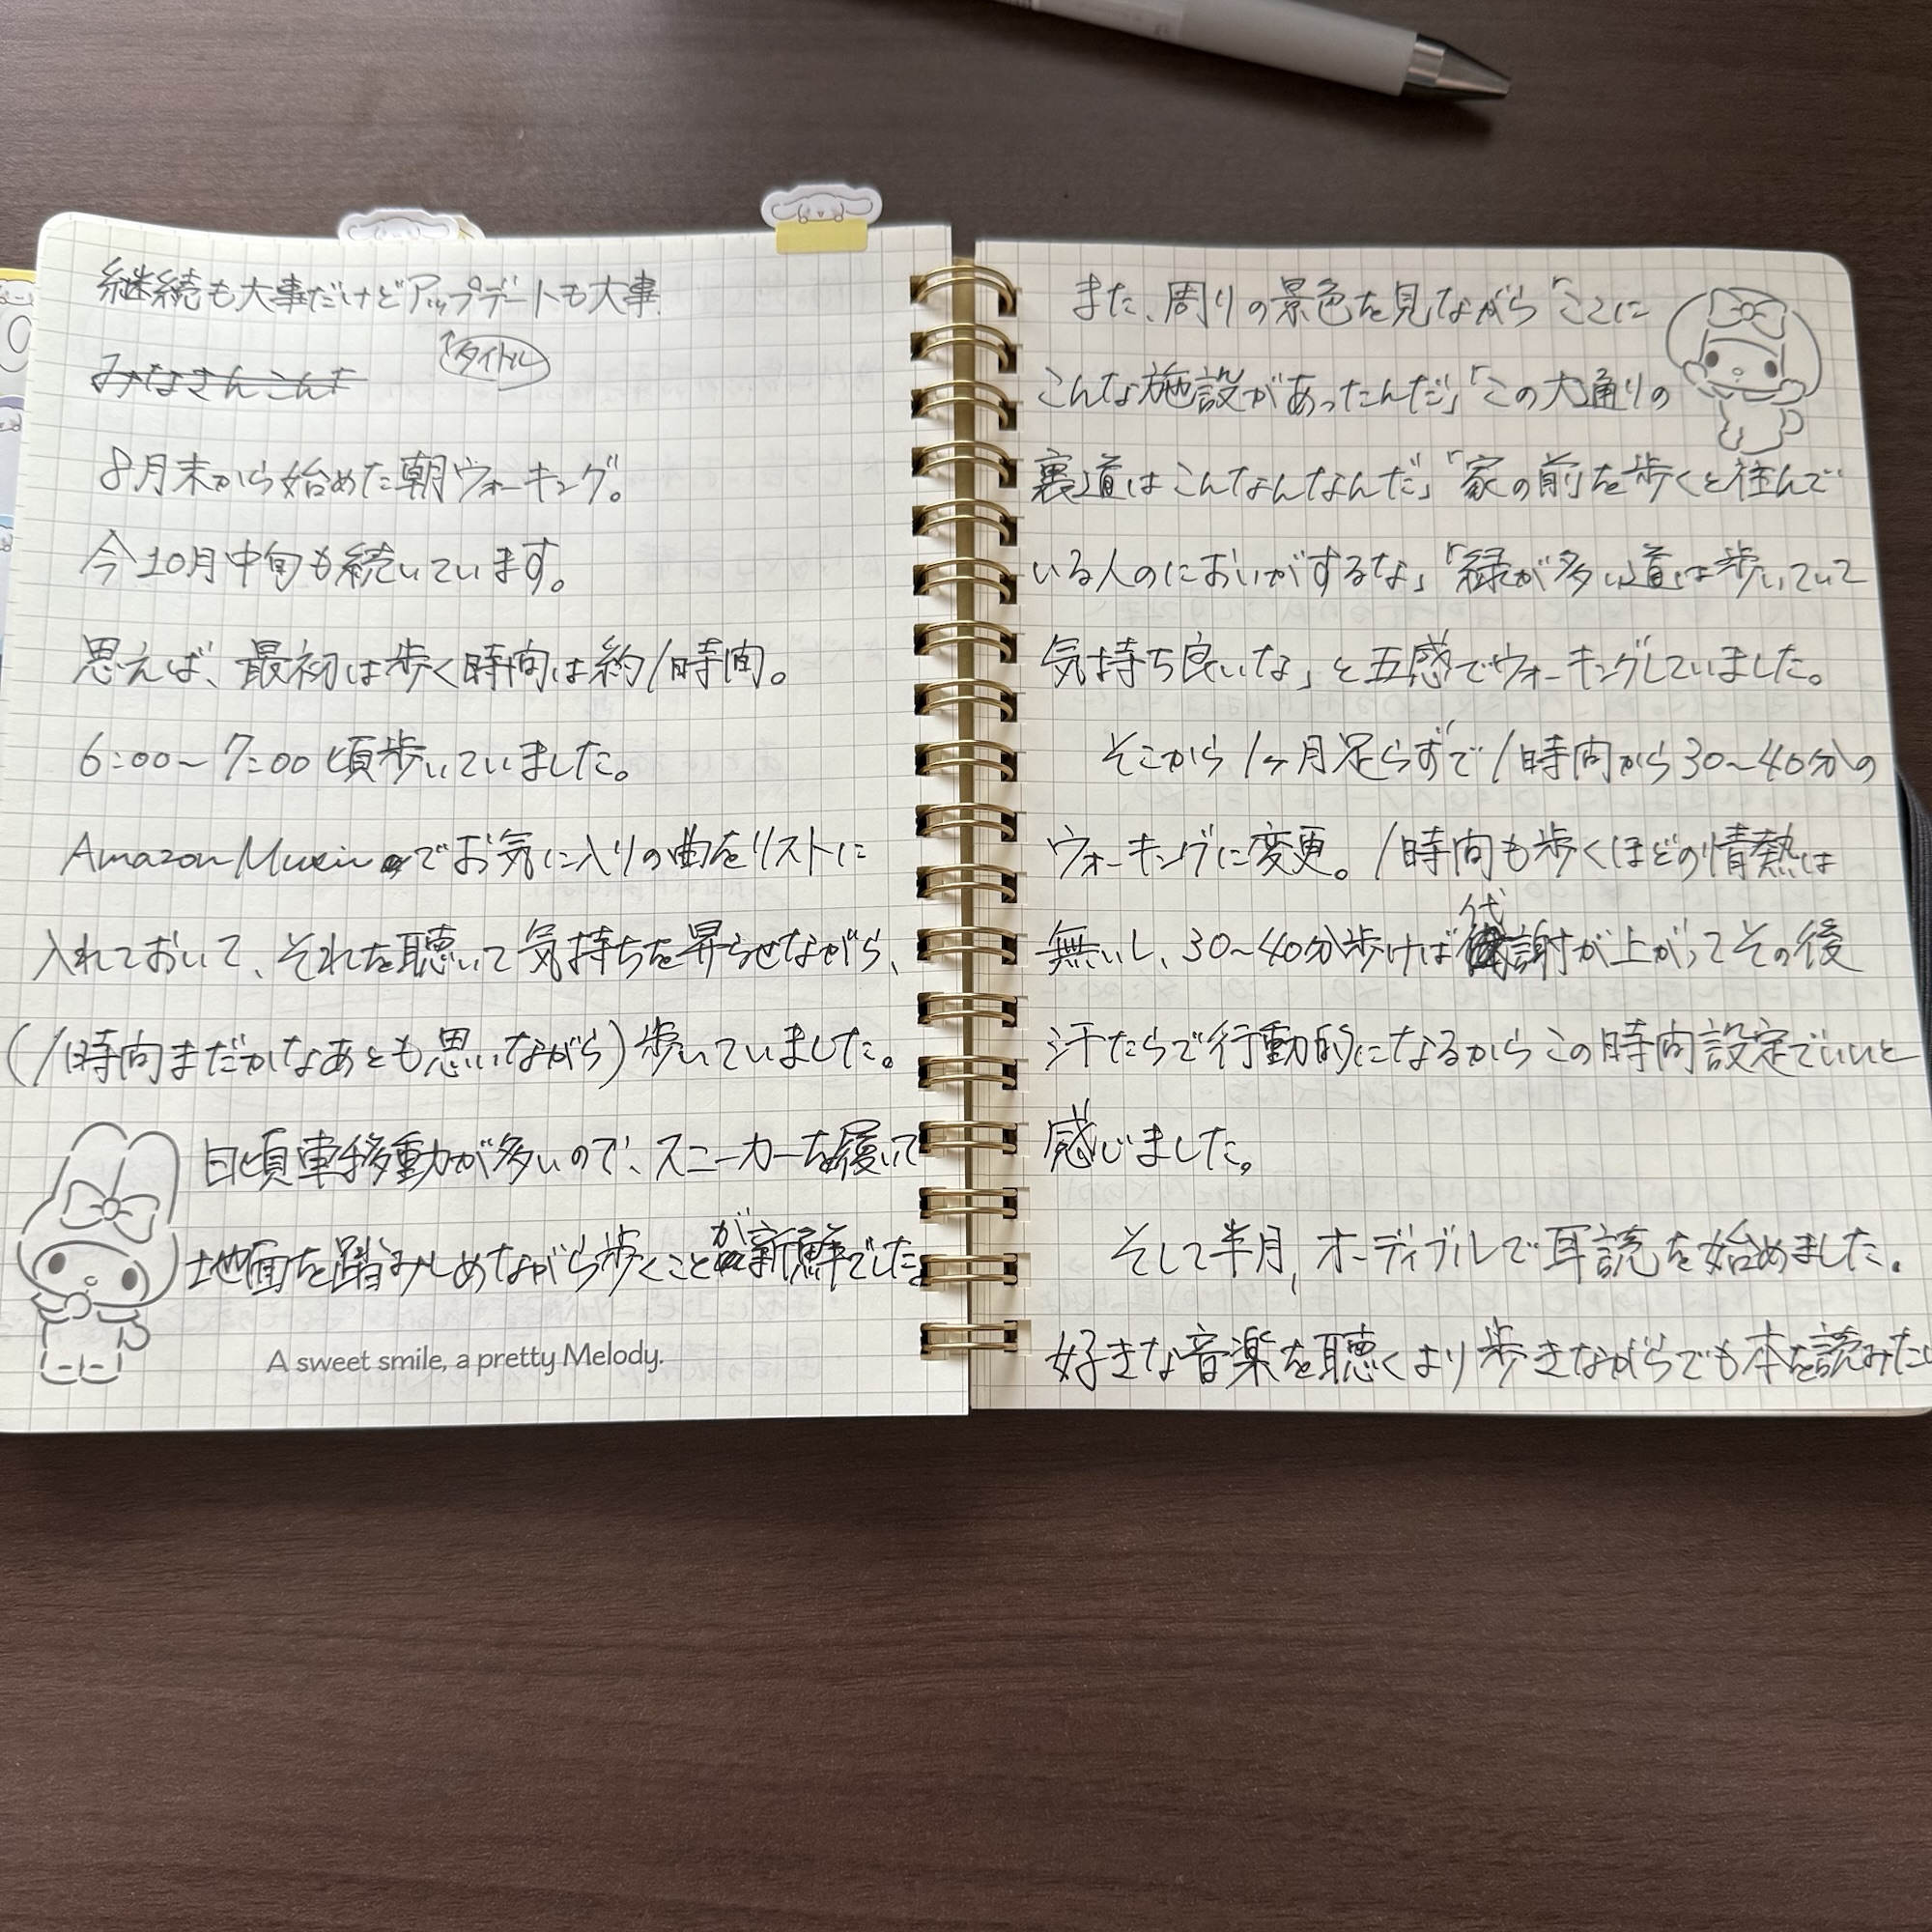 継続も大事だけどアップデートも大事
↑タイトル
みなさんこんに
8月末から始めた朝ウォーキング。
今10月中旬も続いています。
思えば、最初は歩く時間は約1時間。
6:00～7:00頃歩いていました。
Amazon Musicでお気に入りの曲をリストに
入れておいて、それを聴いて気持ちを昇らせながら、
(1時間まだかなあとも思いながら)歩いていました。
日頃車移動が多いので、スニーカーを履いて
地面を踏みしめながら歩くことが新鮮でした。
A sweet smile, a pretty Melody.
また、周りの景色を見ながら「ここに
こんな施設があったんだ」「この大通りの
裏道はこんなんなんだ」「家の前を歩くと住んで
いる人のにおいがするな」「緑が多い道は歩いていて
気持ち良いな」と五感でウォーキングしていました。
そこから1ヶ月足らずで1時間から30～40分の
ウォーキングに変更。1時間も歩くほどの情熱は
無いし、30～40分歩けば代謝が上がってその後
汗だらで行動的になるからこの時間設定でいいと
感じました。
そして半月、オーディブルで耳読を始めました。
好きな音楽を聴くより歩きながらでも本を読みたい